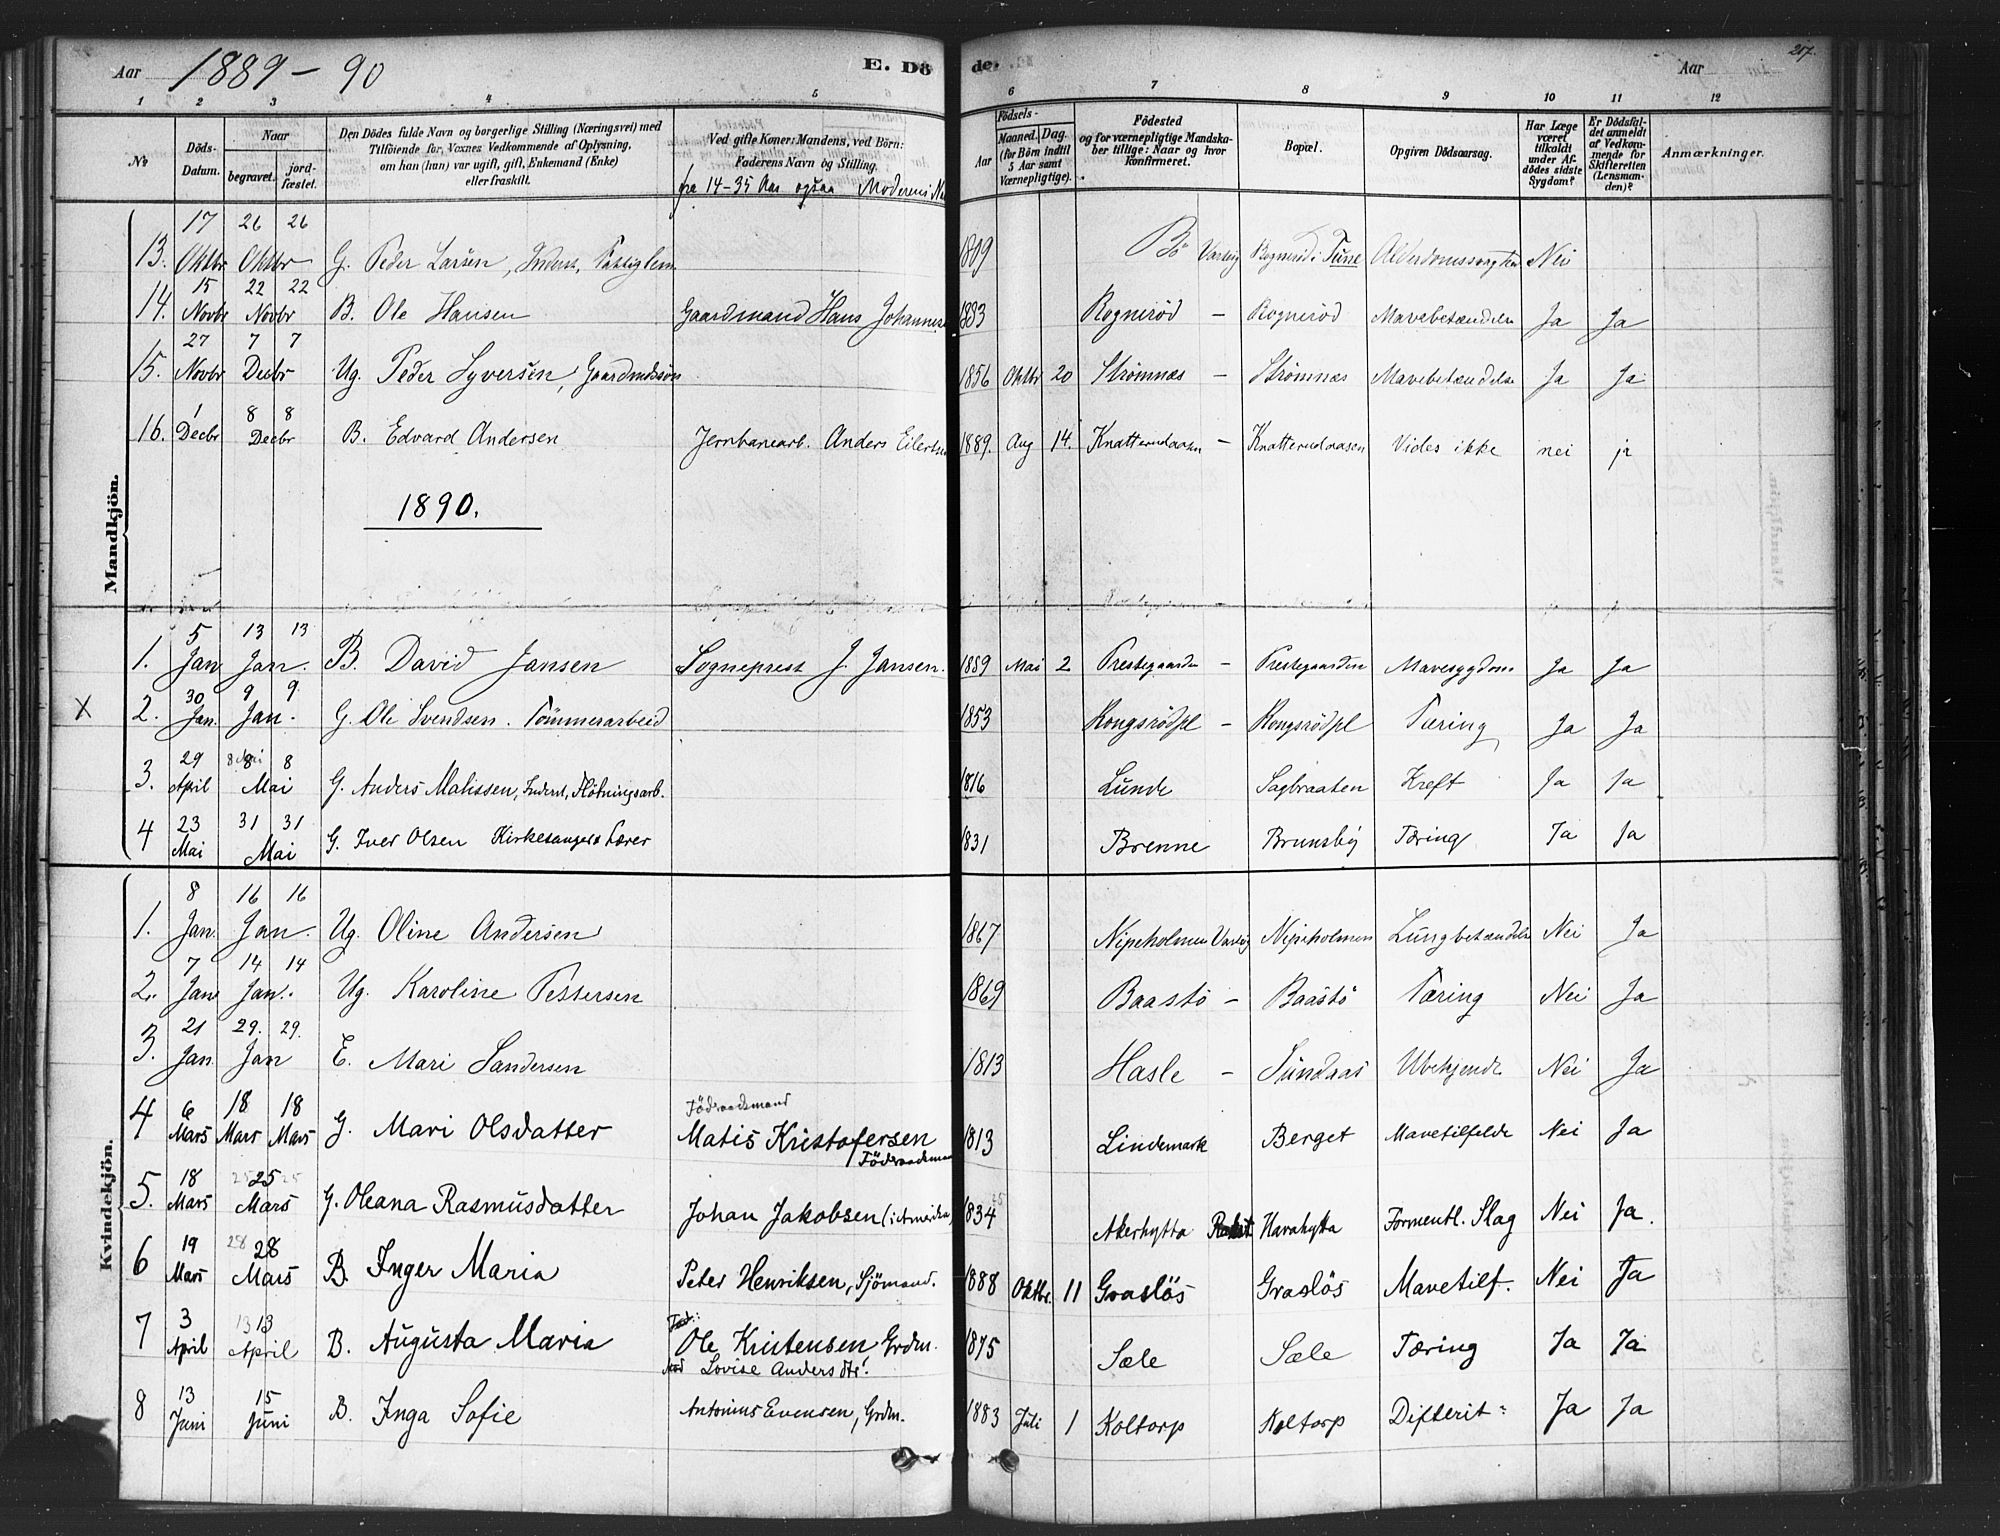 Aar 1889 – 90 E. Dö de. Aar 207.
1 2 3 4 5 6 7 8 9 10 11 12
No Döds-Datum. Naar begravet. jord-fæstet. Den Dödes fulde Navn og borgerlige Stilling (Næringsvei) med Tilföiende for Voxnes Vedkommende af Oplysning, om han (hun) var ugift, gift, Enkemand (Enke) eller fraskilt. Ved gifte Koner: Mandens, ved Börn: Faderens Navn og Stilling. fra 14-35 Aar ogsaa Moderens Aar Födsels- Maaned. Dag. (for Börn indtil 5 Aar samt Værnepligtige). Födested og for værnepligtige Mandska-ber tillige: Naar og hvor Konfirmeret. Bopæl. Opgiven Dödsaarsag. Har Læge været tilkaldt under Af-dödes sidste Sygdom? Er Dödsfal-det anmeldt af Vedkom-mende for Skifteretten (Lensman-den)? Anmærkninger.
Mandkjön.
13. 17 Oktbr 26 26 Oktbr G. Peder Larsen, Inderst, Fattiglem 1809 Bö Varteig Rogneröd i Tune Alderdomssvaghed Nei
14. 15 Novbr 22 22 Novbr B. Ole Hansen Gaardmand Hans Johannes 1883 Rognerød – Rognerød Mavebetændelse Ja Ja
15. 27 Novbr 7 7 Decbr Ug. Peder Syversen, Gaardmdssön 1856 Oktbr 20 Strømnæs – Strømnæs Mavebetændelse Ja Ja
16. 1 Decbr 8 8 Decbr B. Edvard Andersen Jernbanearb. Anders Eilertsen 1889. Aug 14. Knatterudaasen – Knatterudaasen Vides ikke nei ja
1890.
1. 5 Jan 13 13 Jan. B. David Jansen Sogneprest J. Jansen. 1889 Mai 2 Prestegaarden – Prestegaarden Mavesygdom Ja Ja
X 2. 30 Jan. 9 9 Jan. G. Ole Svendsen. Tömmerarbeid 1853 Kongsrödpl – Kongsrödpl Tæring Ja Ja
3. 29 April 8 8 Mai G. Anders Matissen, Inderst, Flötningsarb. 1816 Lunde Sagbraaten Kreft Ja Ja
4 23 Mai 31 31 Mai G. Iver Olsen Kirkesanger & Lærer 1831 Brenne Brunsby Tæring Ja Ja
Kvindekjön.
1. 8 Jan. 16 16 Jan. Ug. Oline Andersen 1867 Nipeholmen Varteig Nipeholmen Lungbetændelse Nei Ja
2. 7 Jan 14 14 Jan. Ug. Karoline Pettersen 1869 Baastö – Baastö Tæring Nei Ja
3. 21 Jan. 29. 29. Jan E. Mari Sandersen 1813 Hasle – Sundaas Ubekjendt Nei Ja
4 6 Mars 18 Mars 18 Mars G. Mari Olsdatter Födraadsmand Matis Kristofersen 1813 Lindemark Berget Mavetilfelde Nei Ja
5. 18 Mars 25 25 25 Mars G. Oleana Rasmusdatter Födraadsman Johan Jakobsen (i Amerika) 1834 Akerhytta Havahytta Formentl. Slag Nei Ja.
6 19 Mars 28 28 Mars B. Inger Maria Peter Henriksen, Sjömand. 1888 Oktbr. 11 Graslös Graslös Mavetilf. Nei Ja
7 3 April 13 13 April B. Augusta Maria Fad.: Ole Kristensen Grdm. Mod Lovise Andersdtr. 1875 Sæle Sæle Tæring Ja Ja
8 13 Juni 15 Juni B. Inga Sofie Antonius Evensen, Grdm. 1883 Juli 1 Koltorp Koltorp Difterit Ja Ja